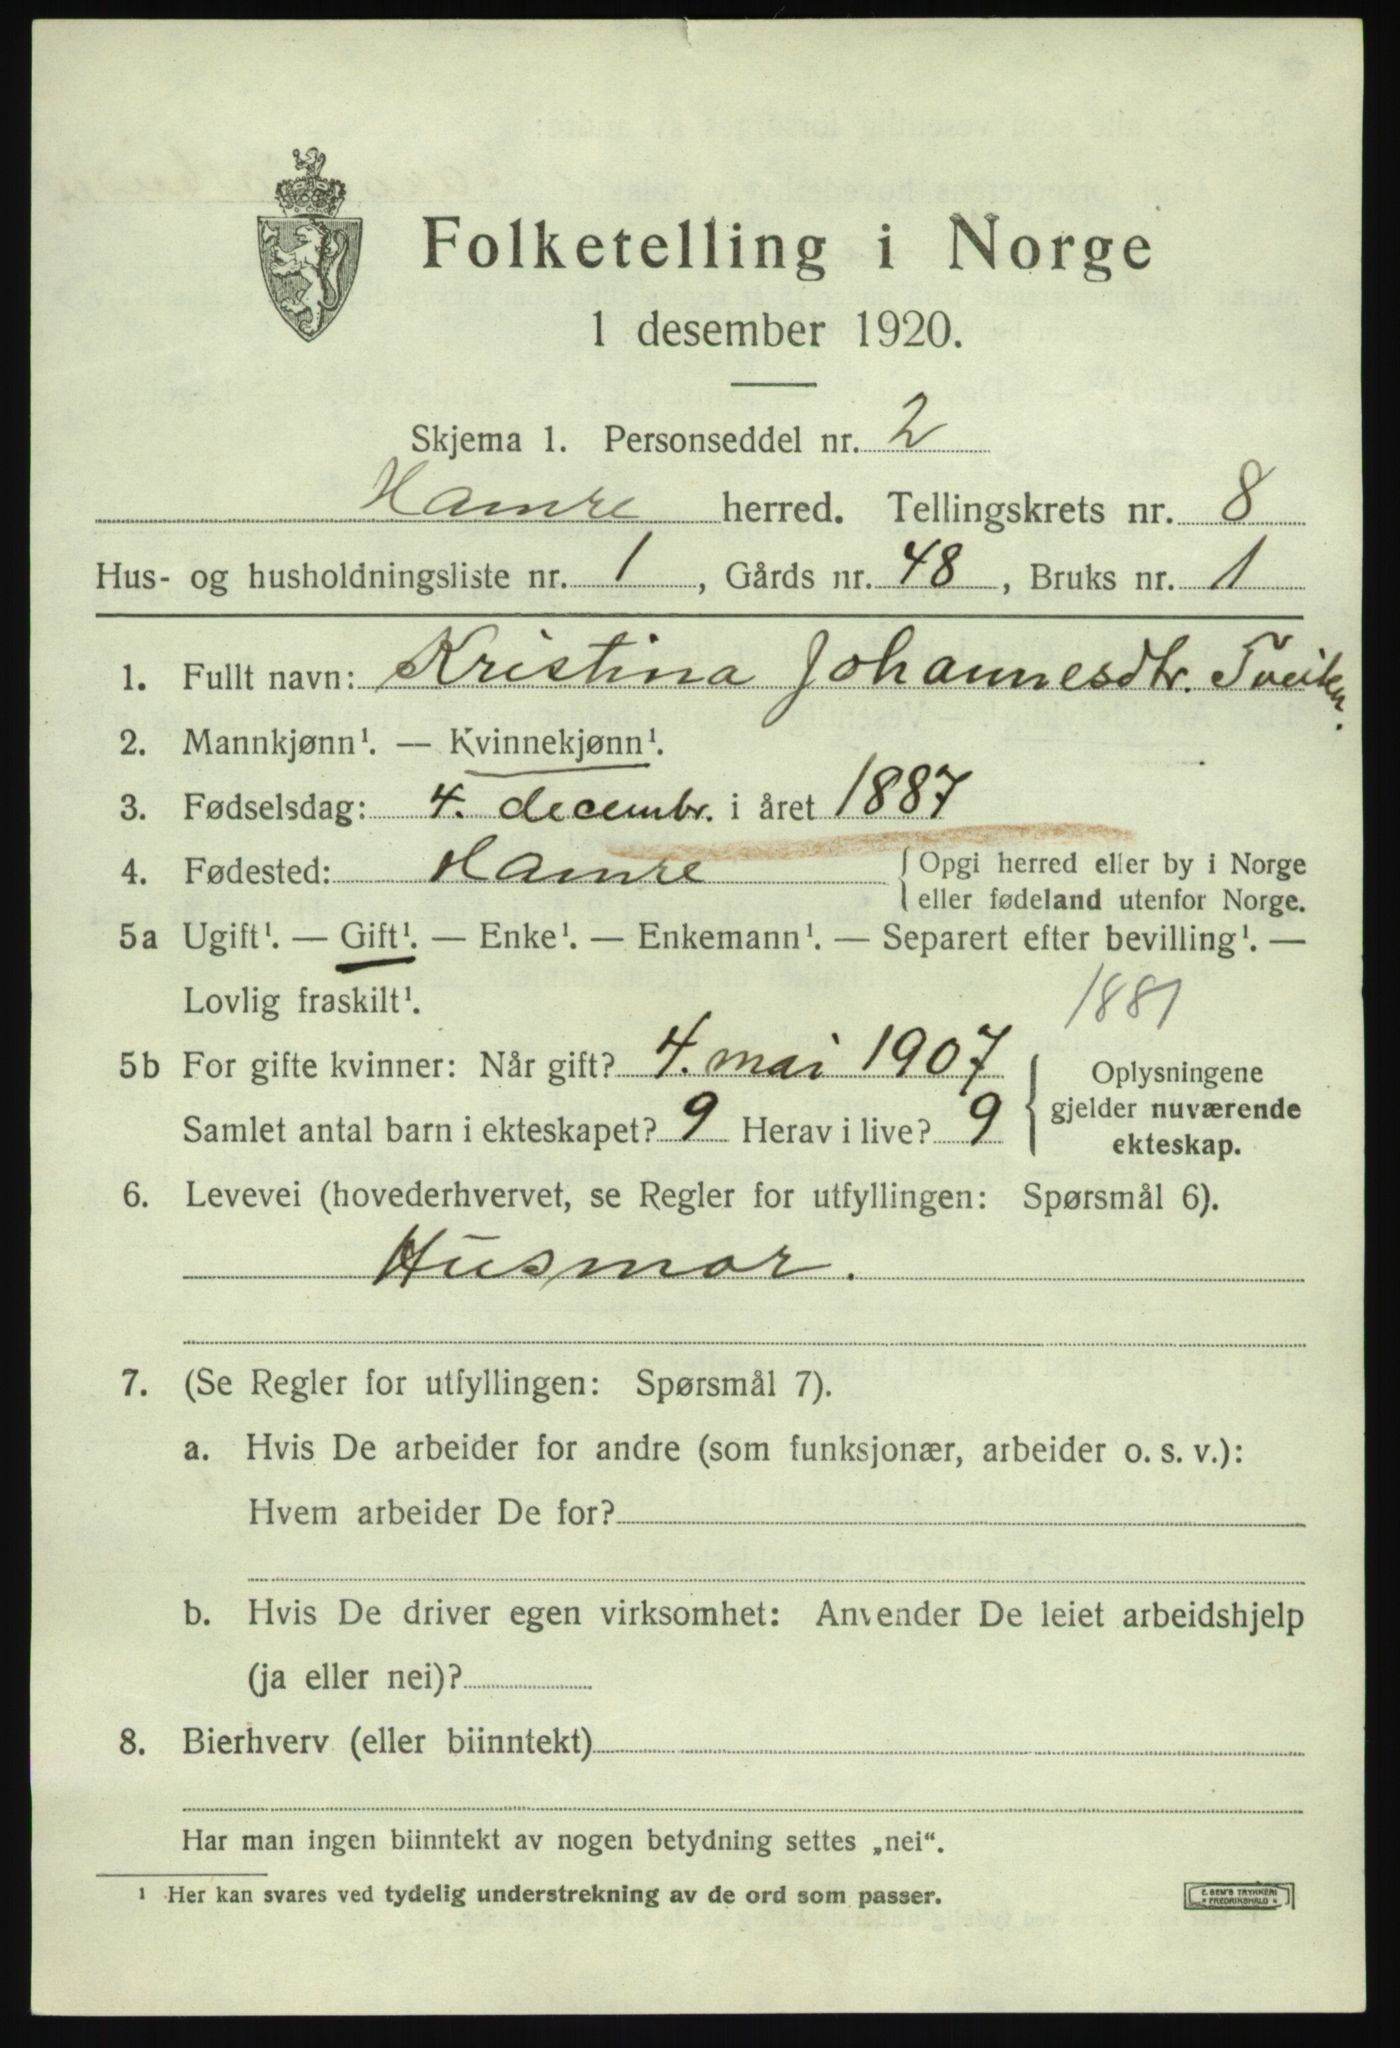 Folketelling i Norge
1 desember 1920.
Skjema 1. Personseddel nr. 2
Hamre herred. Tellingskrets nr. 8
Hus- og husholdningsliste nr. 1, Gårds nr. 48, Bruks nr. 1
1. Fullt navn: Kristina Johannesdtr. Tveiten.
2. Mannkjønn¹. — Kvinnekjønn¹.
3. Fødselsdag: 4. decembr. i året 1887
4. Fødested: Hamre { Opgi herred eller by i Norge
eller fødeland utenfor Norge.
5a Ugift¹. — Gift¹. — Enke¹. — Enkemann¹. — Separert efter bevilling¹. —
Lovlig fraskilt¹. 1881
5b For gifte kvinner: Når gift? 4. mai 1907
Samlet antal barn i ekteskapet? 9 Herav i live? 9
{ Oplysningene
gjelder nuværende
ekteskap.
6. Levevei (hovederhvervet, se Regler for utfyllingen: Spørsmål 6).
Husmor.
7. (Se Regler for utfyllingen: Spørsmål 7).
a. Hvis De arbeider for andre (som funksjonær, arbeider o. s. v.):
Hvem arbeider De for?
b. Hvis De driver egen virksomhet: Anvender De leiet arbeidshjelp
(ja eller nei)?
8. Bierhverv (eller biinntekt)
Har man ingen biinntekt av nogen betydning settes „nei“.
¹ Her kan svares ved tydelig understrekning av de ord som passer.
E. SEM'S TRYKKERI
FREDRIKSHALD